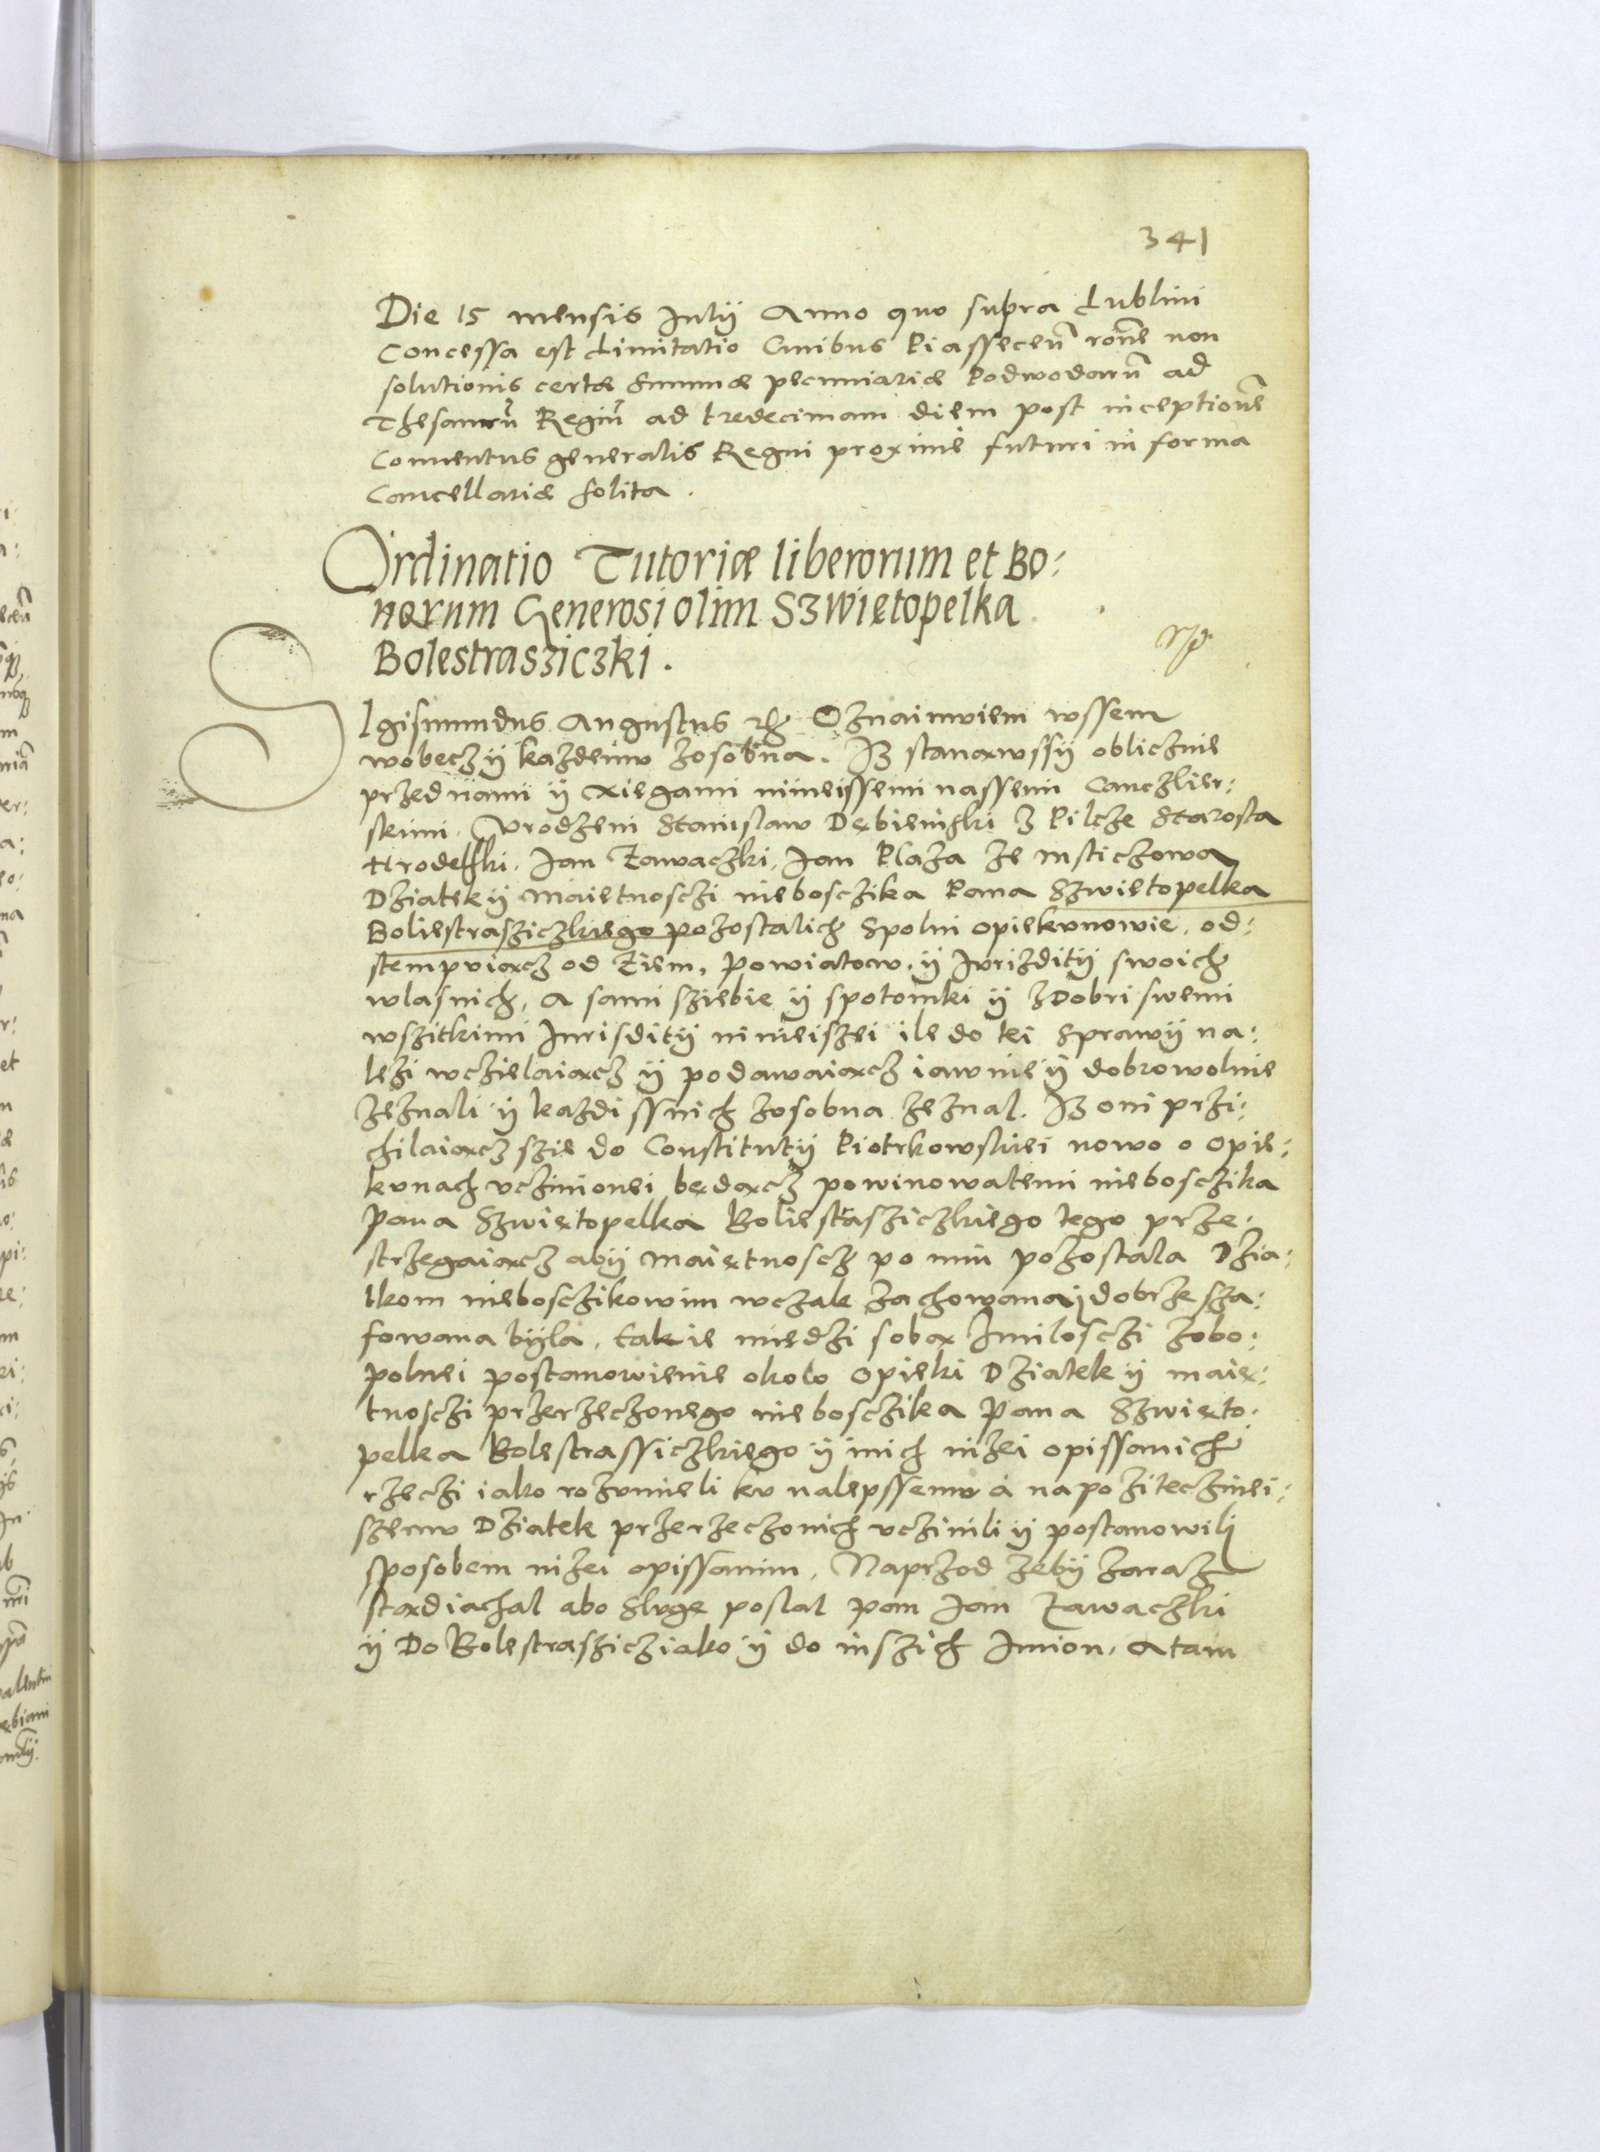 341
Die 15 mensis Julÿ Anno quo supra Lublini
Concessa est Limitatio Civibus Piassecen̄ rōne non
solutionis certæ Summæ pecuniariæ Podwodarū ad
Thesaurū Regiū ad tredecimam diem post inceptionē
Conventus generalis Regni proxime futuri in forma
Cancellariæ solita.
Ordinatio Tutoriæ liberorum et Bo:
norum Generosi olim Szwiętopelka
Bolestrasziczki.
SIgismundus Augustus Oznaimuiem wssem
wobecz ÿ kazdemu zosobna. Iz stanąwssÿ oblicznie
przed nami ÿ xięgami nineissemi nassemi Canczlier:
skimi. Vrodzeni Stanislaw Dębienski z Pilcze Starosta
Hrodelski. Jan Zawaczki, Jan Plaza ze Msticzowa
Dziatek ÿ Maietnosczi niebosczika Pana Szwietopelka
Boliestrasziczkiego pozostalich Spolni opiekunowie, od:
stempuiącz od Ziem, Powiatow, ÿ Jurizditÿ swoich
wlasnich, a sami sziebie ÿ spotomki ÿ zDobri swemi
wszitkimi Jurisditÿ ninieiszei ile do tei Sprawÿ na:
lezi wczielaiącz ÿ podawaiącz iawnie ÿ dobrowolnie
zeznali ÿ kazdi ssnich zosobna zeznal. Iz oni przi:
chilaiącz szie do Constitutÿ Piotrkowskiei nowo o Opie:
kunach uczinionei będącz powinowatemi niebosczika
Pana Szwiętopelka Boliestasziczkiego tego prze:
strzegaiącz abÿ Maiętnoscz po nim pozostala Dzia:
tkom niebosczikowim wczale zachowana ÿ dobrze sza:
fowana bÿla, takie miedzi sobą zmilosczi zobo:
polnei postanowienie okolo Opieki Dziatek ÿ maię:
tnosczi przerzeczonego niebosczika Pana Szwięto:
pelka Bolestrassiczkiego ÿ inich nizei opissanich
rzeczi iako rozumieli ku nalepssemu a napoziteczniei:
szemu Dziatek przerzeczonich uczinili ÿ postanowili
sposobem nizei opissanim. Naprzod zebÿ zaraz
stądiachal abo Sluge poslal pan Jan Zawaczki
ÿ Do Bolestrasziczi iako ÿ do inszich Jmion. Atam